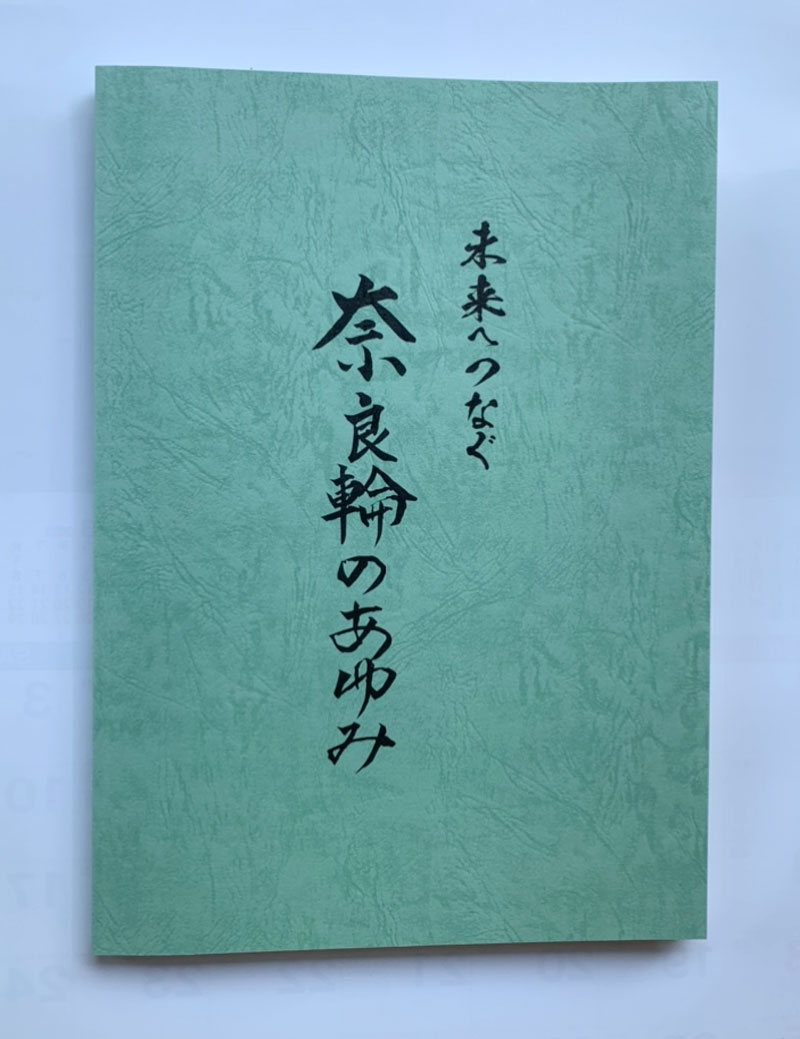 未来へつなぐ
奈良輪のあゆみ